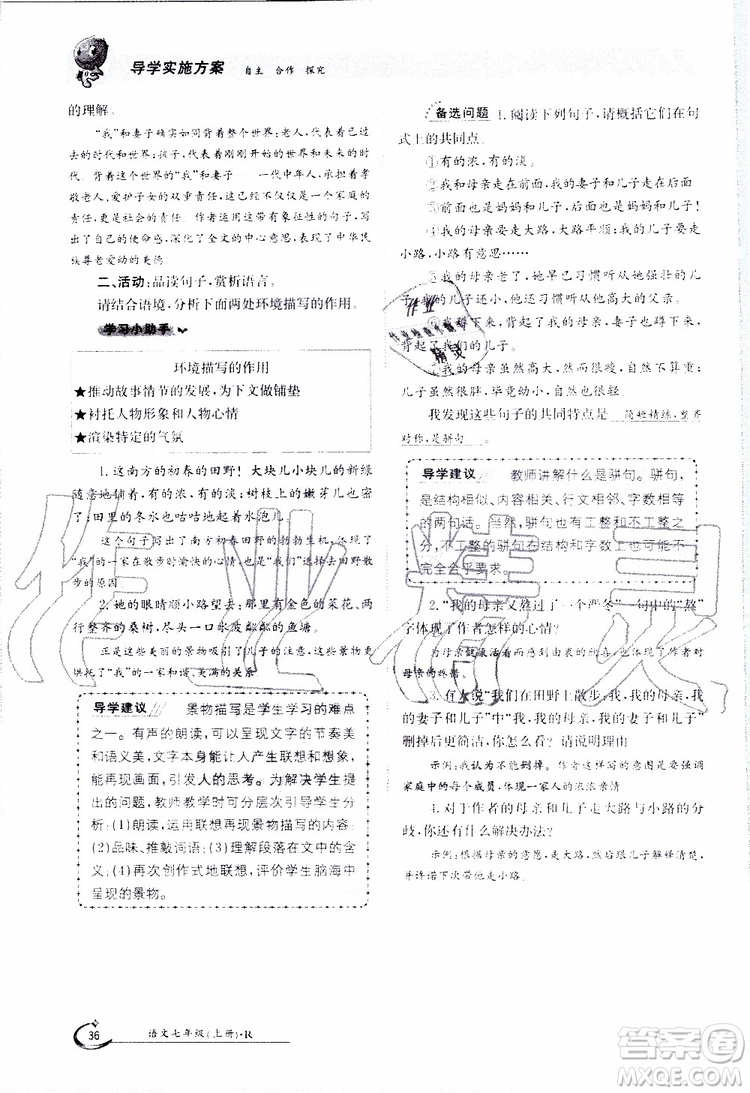 导学实施方案 自主 合作 探究
的理解。
“我”和妻子确实如同背着整个世界：老人，代表着过
去的时代和世界；孩子，代表着刚刚开始的世界和未来的时
代。背着整个世界的“我”和妻子——一代中年人，承担着孝
敬老人、爱护子女的双重责任，这不仅仅是一个家庭的
责任，更是社会的责任。作者运用这带有象征性的句子，写
出了自己的使命感，深化了全文的中心意思，表现了中华民
族尊老爱幼的美德
二、活动：品读句子，赏析语言。
请结合语境，分析下面两处环境描写的作用。
学习小助手
环境描写的作用
★推动故事情节的发展，为下文做铺垫
★衬托人物形象和人物心情
★渲染特定的气氛
1. 这南方的初春的田野！大块儿小块儿的新绿
随意地铺着，有的浓，有的淡；树枝上的嫩芽儿也密
了；田里的冬水也咕咕地起着水泡儿
这个句子写出了南方初春田野的勃勃生机，表现了
“我”一家人在散步时愉快的心情；也是“我们”来到田野散
步的原因
2. 她的眼睛顺小路望去：那里有金色的菜花、两
行整齐的桑树，尽头一口水波粼粼的鱼塘。
正是这些美丽的景物吸引了儿子的注意，这些景物更
烘托了“我”一家和谐、美满的关系
导学建议
景物描写是学生学习的难点
之一。有声的朗读，可以呈现出文字的节奏美
和语义美，文字本身能让人产生联想和想象，
能再现画面，引发人的思考。为解决学生提
出的问题，教师教学时可以做这样的设计：
(1)朗读，运用联想再现景物描写的内容；
(2)品味、推敲词语；(3)返回段落在文中的含
义；(4)再次创作式地联想，评价学生脑海中
呈现的景物。
备选问题 1. 阅读下列句子，请概括它们在句
式上的共同点。
①有的浓，有的淡。
②我和母亲走在前面，我的妻子和儿子走在后面
③前面也是妈妈和儿子，后面也是妈妈和儿子。
④我的母亲要走大路，大路平顺；我的儿子要走
小路，小路有意思……
⑤我的母亲老了，她早已习惯听从她强壮的儿
子；我的儿子还小，他还习惯听从他高大的父亲。
⑥我蹲下来，背起了我的母亲，妻子也蹲下来，
背起了我们的儿子。
⑦我的母亲虽然高大，然而很瘦，自然不算重；
儿子虽然很胖，毕竟幼小，自然也轻。
我发现这些句子的共同特点是 简短精练，整齐
对称，是骈句。
导学建议
教师讲解什么是骈句。骈句，
是结构相似、内容相关、行文相邻、字数相等
的两句话。当然，骈句也有工整和不工整之
分，不工整的骈句在结构和字数上，可能不
完全合乎要求。
2.“我的母亲又熬过了一个严冬”一句中的“熬”
字体现了作者怎样的心情？
为母亲能继续活着而感到由衷的欣喜，也体现了作者对
母亲的体贴。
3. 有人说“我们在田野上散步：我，我的母亲，我
的妻子和儿子”中的“我，我的母亲，我的妻子和儿子”
删掉后更简洁，你怎么看？请说明理由
示例：我认为不能删掉。作者这样写的意图是要强调
家庭中的每个成员，体现一家人的浓浓亲情。
4. 对于作者的母亲和儿子走大路与小路的分
歧，你还有什么解决办法？
示例：听从母亲的意愿，走大路，然后跟儿子解释清楚，
并许诺下次带他走小路。
作业精灵
36 语文七年级(上册)·R
答案圈
MXQE.COM